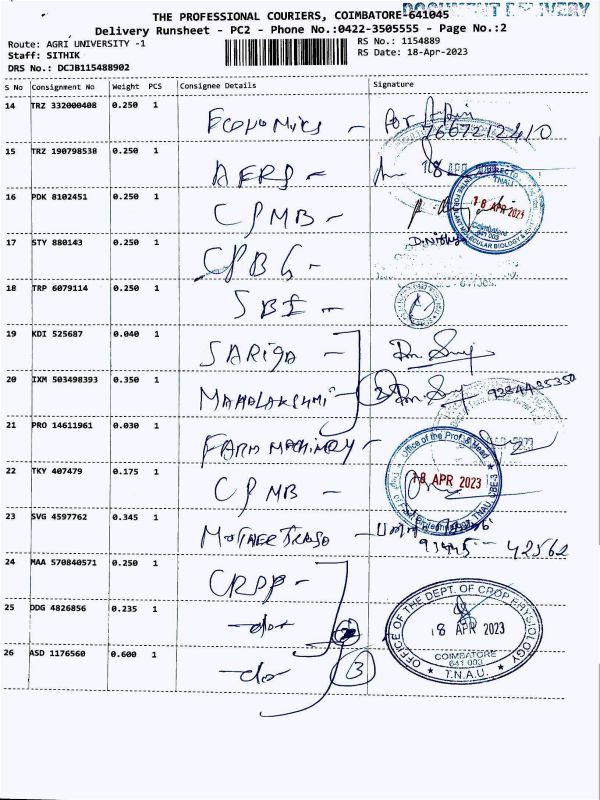 THE PROFESSIONAL COURIERS, COIMBATORE-641045
DOCUMENT DELIVERY
Delivery Runsheet - PC2 - Phone No.:0422-3505555 - Page No.:2
Route: AGRI UNIVERSITY -1
RS No.: 1154889
Staff: SITHIK
RS Date: 18-Apr-2023
DRS No.: DCJB115488902
S No Consignment No Weight PCS Consignee Details Signature
14 TRZ 332000408 0.250 1 Economics - For
7667212410
15 TRZ 190798538 0.250 1 AERS - 18 APR
16 PDK 8102451 0.250 1 CPMB -
TNAU
18 APR 2023
Coimbatore
641 003
MOLECULAR BIOLOGY &
17 STY 880143 0.250 1 CPBG - D.Nithya
18 TRP 6079114 0.250 1 SBI -
19 KDI 525687 0.040 1 SARIGA -
20 IXM 503498393 0.350 1 MAHALAKSHMI - 2
21 PRO 14611961 0.030 1 FARM MACHINERY -
Office of the Prof. & Head
22 TKY 407479 0.175 1 CPMB -
18 APR 2023
TNAU, CBE-3
23 SVG 4597762 0.345 1 MOTHER -
93445 - 42562
24 MAA 570840571 0.250 1 CROP -
25 DDG 4826856 0.235 1 -do-
26 ASD 1176560 0.600 1 -do- 3
OFFICE OF THE DEPT. OF CROP PHYSIOLOGY
18 APR 2023
COIMBATORE
641 003
* T.N.A.U. *